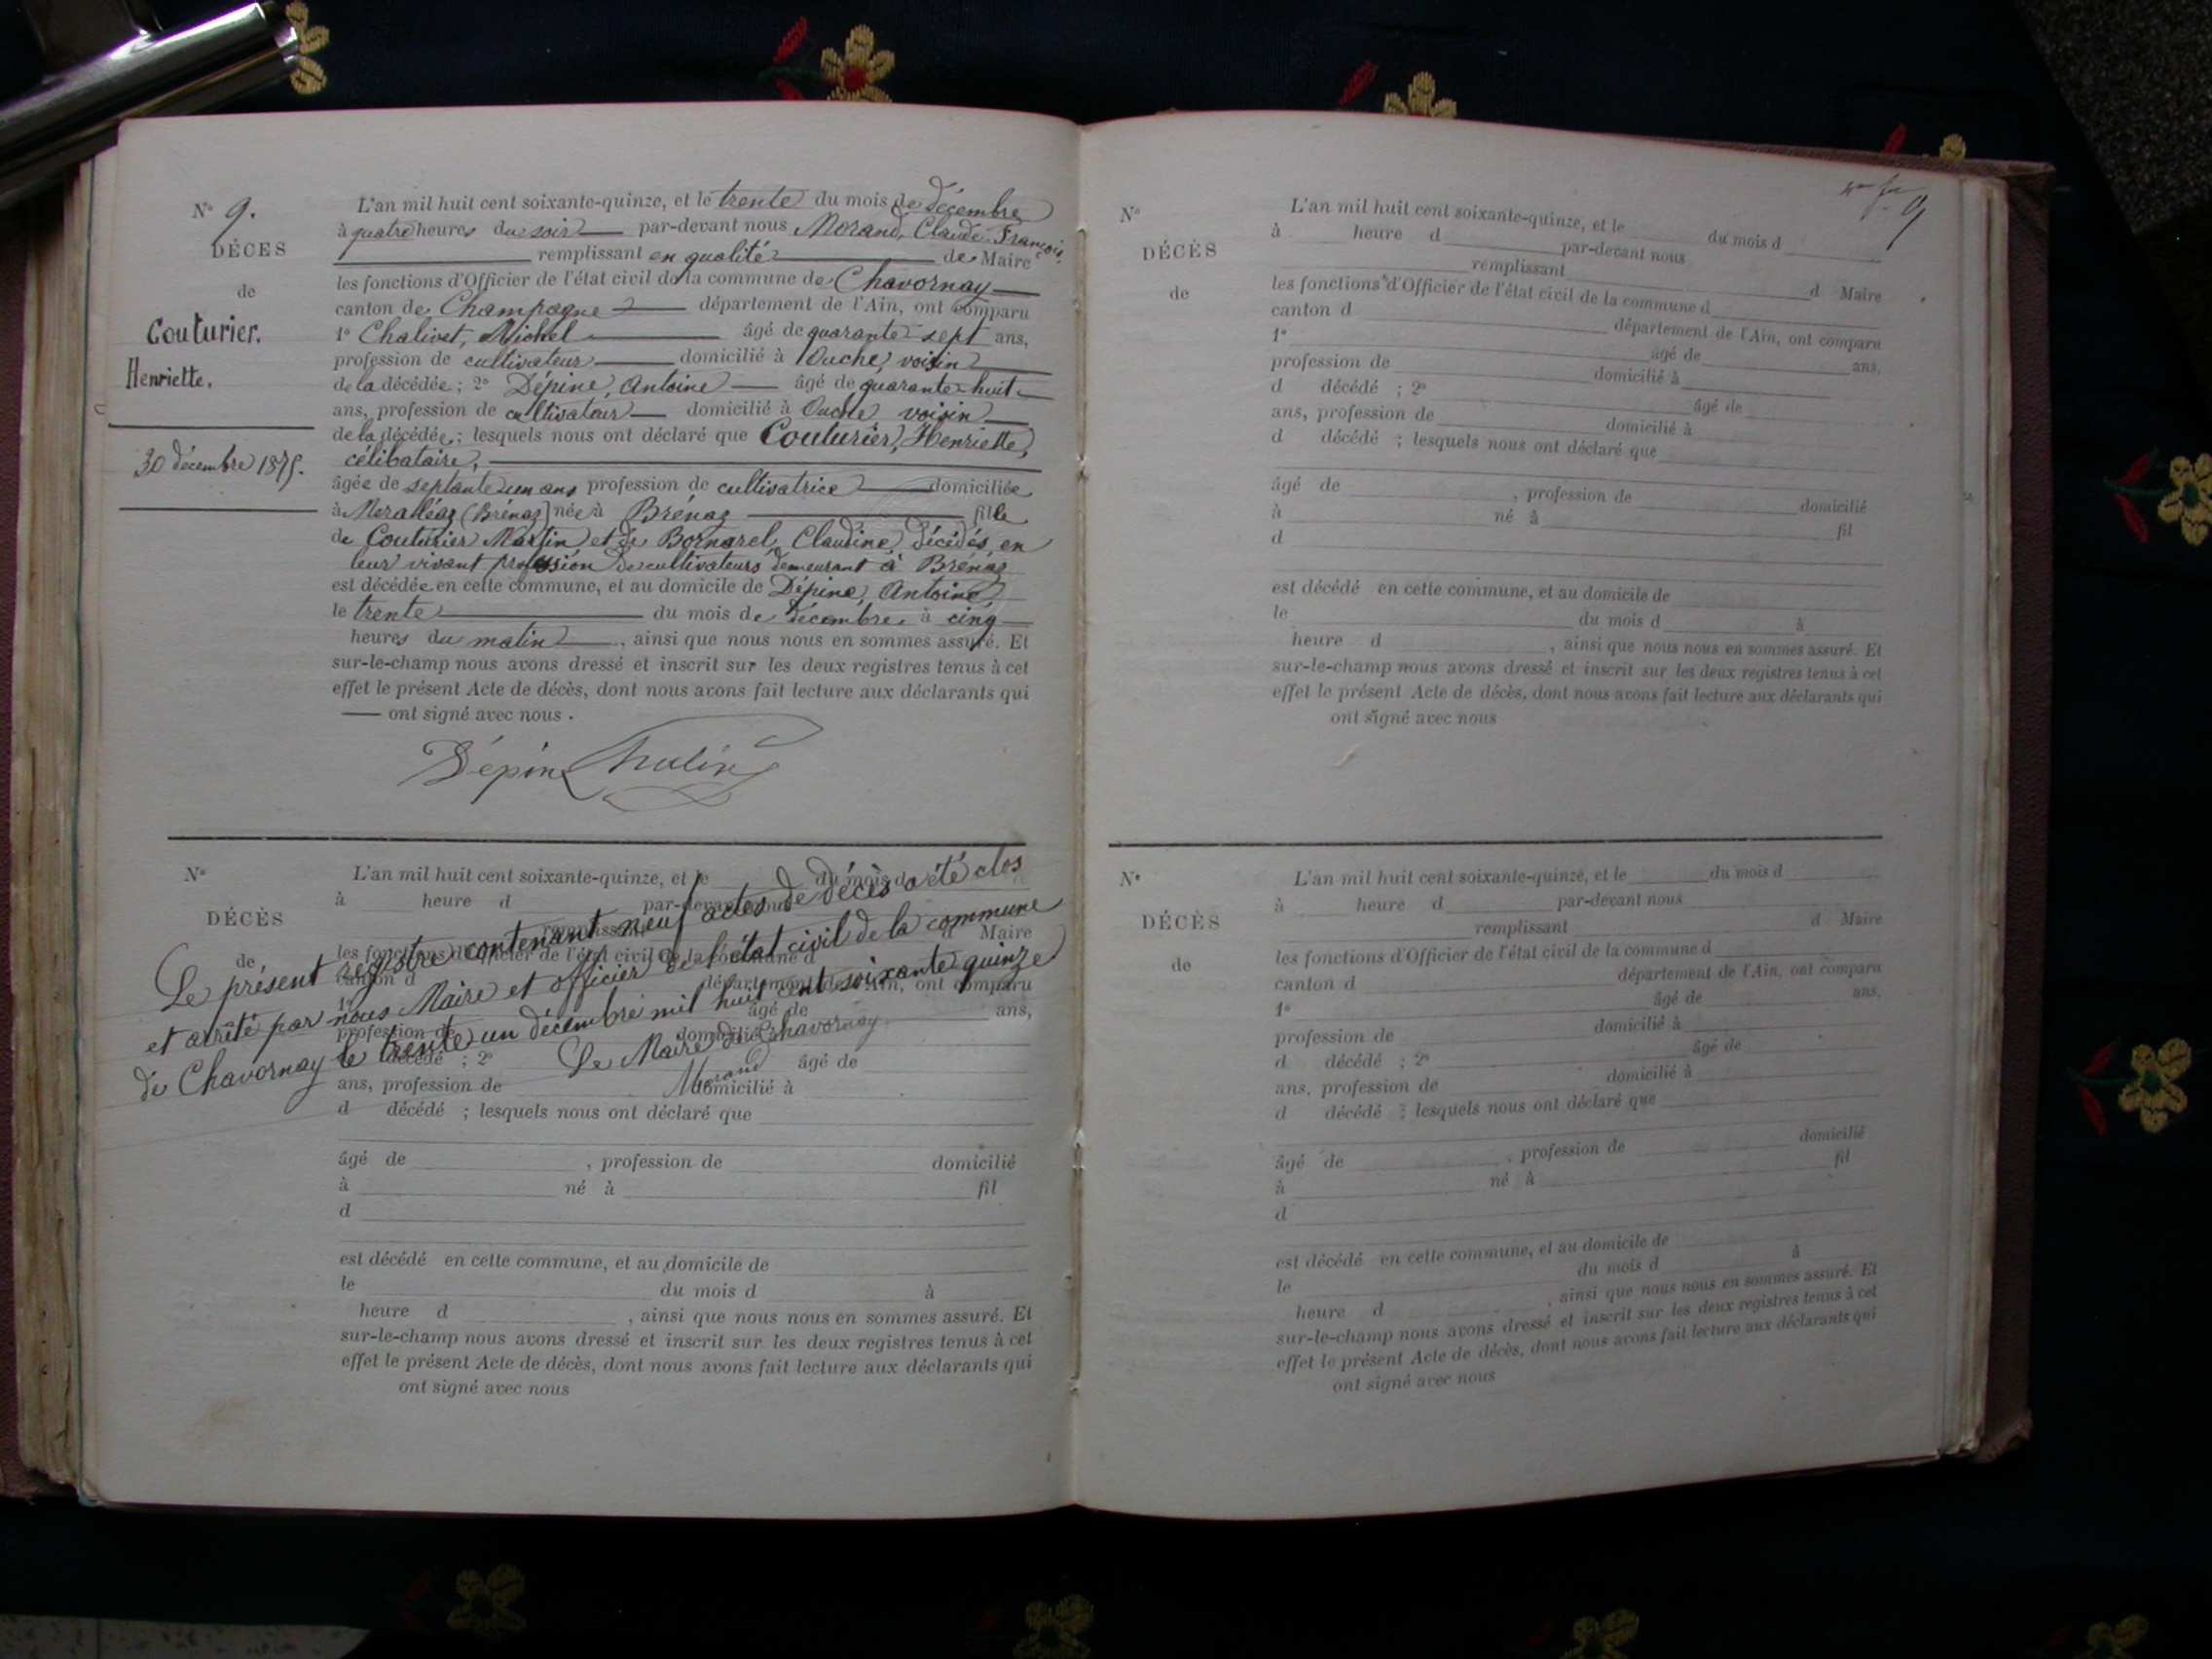 N° 9.
DÉCÈS
de
Couturier,
Henriette.
30 décembre 1875.
L'an mil huit cent soixante-quinze, et le trente du mois de décembre
à quatre heures du soir par-devant nous Morand, Claude-François,
remplissant en qualité de Maire
les fonctions d'Officier de l'état civil de la commune de Chavornay
canton de Champagne département de l'Ain, ont comparu
1° Chalivet, Michel âgé de quarante-sept ans,
profession de cultivateur domicilié à Ouche, voisin
de la décédée ; 2° Dépine, Antoine âgé de quarante-huit
ans, profession de cultivateur domicilié à Ouche voisin
de la décédée ; lesquels nous ont déclaré que Couturier, Henriette,
célibataire,
âgée de septante un ans profession de cultivatrice domiciliée
à Meraléaz (Brénaz) née à Brénaz fille
de Couturier Martin et de Bornarel, Claudine, décédés, en
leur vivant profession de cultivateurs demeurant à Brénaz
est décédée en cette commune, et au domicile de Dépine, Antoine,
le trente du mois de décembre à cinq
heures du matin , ainsi que nous nous en sommes assuré. Et
sur-le-champ nous avons dressé et inscrit sur les deux registres tenus à cet
effet le présent Acte de décès, dont nous avons fait lecture aux déclarants qui
ont signé avec nous .
Dépin
N°
DÉCÈS
de
L'an mil huit cent soixante-quinze, et le du mois d
à heure d par-devant nous
remplissant d Maire
les fonctions d'Officier de l'état civil de la commune d
canton d département de l'Ain, ont comparu
1° âgé de ans,
profession de domicilié à
d décédé ; 2° âgé de
ans, profession de domicilié à
d décédé ; lesquels nous ont déclaré que
Le présent registre contenant neuf actes de décès a été clos
et arrêté par nous Maire et officier de l'état civil de la commune
de Chavornay le trente un décembre mil huit cent soixante quinze
Le Maire de Chavornay
Morand
âgé de , profession de domicilié
à né à fil
d
est décédé en cette commune, et au domicile de
le du mois d à
heure d , ainsi que nous nous en sommes assuré. Et
sur-le-champ nous avons dressé et inscrit sur les deux registres tenus à cet
effet le présent Acte de décès, dont nous avons fait lecture aux déclarants qui
ont signé avec nous
9
N°
DÉCÈS
de
L'an mil huit cent soixante-quinze, et le du mois d
à heure d par-devant nous
remplissant d Maire
les fonctions d'Officier de l'état civil de la commune d
canton d département de l'Ain, ont comparu
1° âgé de ans,
profession de domicilié à
d décédé ; 2° âgé de
ans, profession de domicilié à
d décédé ; lesquels nous ont déclaré que
âgé de , profession de domicilié
à né à fil
d
est décédé en cette commune, et au domicile de
le du mois d à
heure d , ainsi que nous nous en sommes assuré. Et
sur-le-champ nous avons dressé et inscrit sur les deux registres tenus à cet
effet le présent Acte de décès, dont nous avons fait lecture aux déclarants qui
ont signé avec nous
N°
DÉCÈS
de
L'an mil huit cent soixante-quinze, et le du mois d
à heure d par-devant nous
remplissant d Maire
les fonctions d'Officier de l'état civil de la commune d
canton d département de l'Ain, ont comparu
1° âgé de ans,
profession de domicilié à
d décédé ; 2° âgé de
ans, profession de domicilié à
d décédé ; lesquels nous ont déclaré que
âgé de , profession de domicilié
à né à fil
d
est décédé en cette commune, et au domicile de
le du mois d à
heure d , ainsi que nous nous en sommes assuré. Et
sur-le-champ nous avons dressé et inscrit sur les deux registres tenus à cet
effet le présent Acte de décès, dont nous avons fait lecture aux déclarants qui
ont signé avec nous